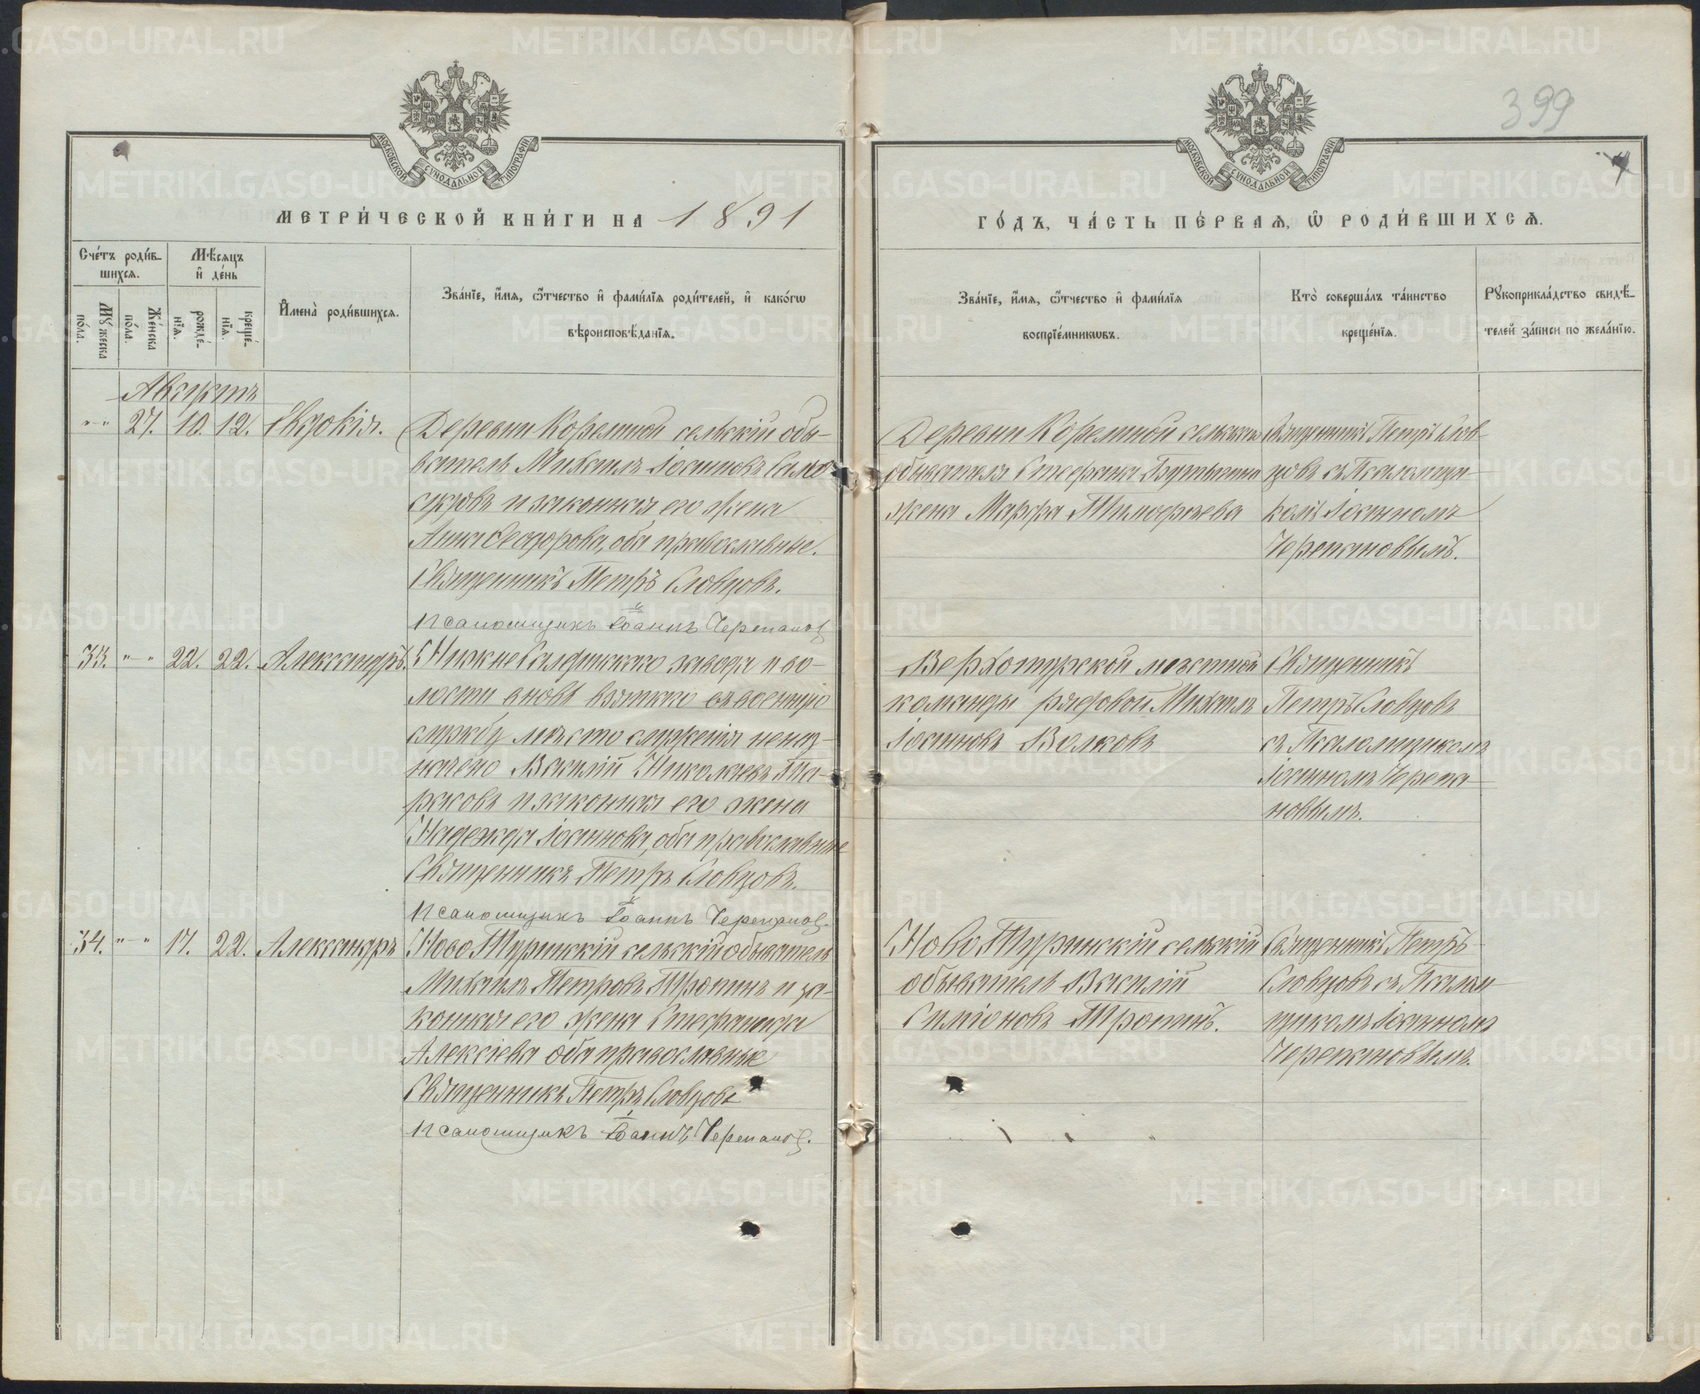 399
4
МЕТРИ́ЧЕСКОЙ КНИ́ГИ НА 1891
ГО́ДЪ, ЧА́СТЬ ПЕ́РВАѦ, Ѽ РОДИ́ВШИХСѦ.
Сче́тъ роди́в-
шихсѧ.
Мꙋ́жеска
по́ла.
Же́нска
по́ла.
Мѣ́сѧцъ
и҆ де́нь
рожде́-
нїѧ.
креще́-
нїѧ.
И҆мена̀ роди́вшихсѧ.
Зва́нїе, и҆́мѧ, ѻ҆́тчество и҆ фами́лїѧ роди́телей, и҆ како́гѡ
вѣроисповѣ́данїѧ.
Зва́нїе, и҆́мѧ, ѻ҆́тчество и҆ фами́лїѧ
воспрїе́мникѡвъ.
Кто̀ соверша́лъ та́инство
креще́нїѧ.
Рꙋкоприкла́дство свидѣ́-
телей за́писи по жела́нїю.
Августъ
" " 27. 10. 12. Евдокія.
Деревни Корелиной сельскій обы-
ватель Михаилъ Іоанновъ
и законная его жена
Анна Ѳеодорова, оба православные.
Священникъ Петръ Словцовъ.
Псаломщикъ Іоаннъ Черепановъ
Деревни Корелиной сельскаго
обывателя Стефана
жена Марѳа Тимофеева
Священникъ Петръ Слов-
цовъ съ Псаломщи-
комъ Іоанномъ
Черепановымъ.
33. " " 22. 22. Александръ.
Нижнесалдинскаго завода и во-
лости вновь взятаго въ военную
службу место служенія неназ-
начено Василій Николаевъ Та-
расовъ и законная его жена
Надежда Іоаннова, оба православные
Священникъ Петръ Словцовъ.
Псаломщикъ Іоаннъ Черепановъ.
Верхотурской местной
команды рядовой Михаилъ
Іоанновъ Волковъ
Священникъ
Петръ Словцовъ
съ Псаломщикомъ
Іоанномъ Черепа-
новымъ.
34. " " 17. 22. Александръ
Ново Туринскій сельскій обыватель
Михаилъ Петровъ Тропинъ и за-
конная его жена Стефанида
Алексіева оба православные
Священникъ Петръ Словцовъ
Псаломщикъ Іоаннъ Черепановъ.
Ново Туринскій сельскій
обыватель Василій
Симіоновъ Тропинъ.
Священникъ Петръ
Словцовъ съ Псалом-
щикомъ Іоанномъ
Черепановымъ.
METRIKI.GASO-URAL.RU